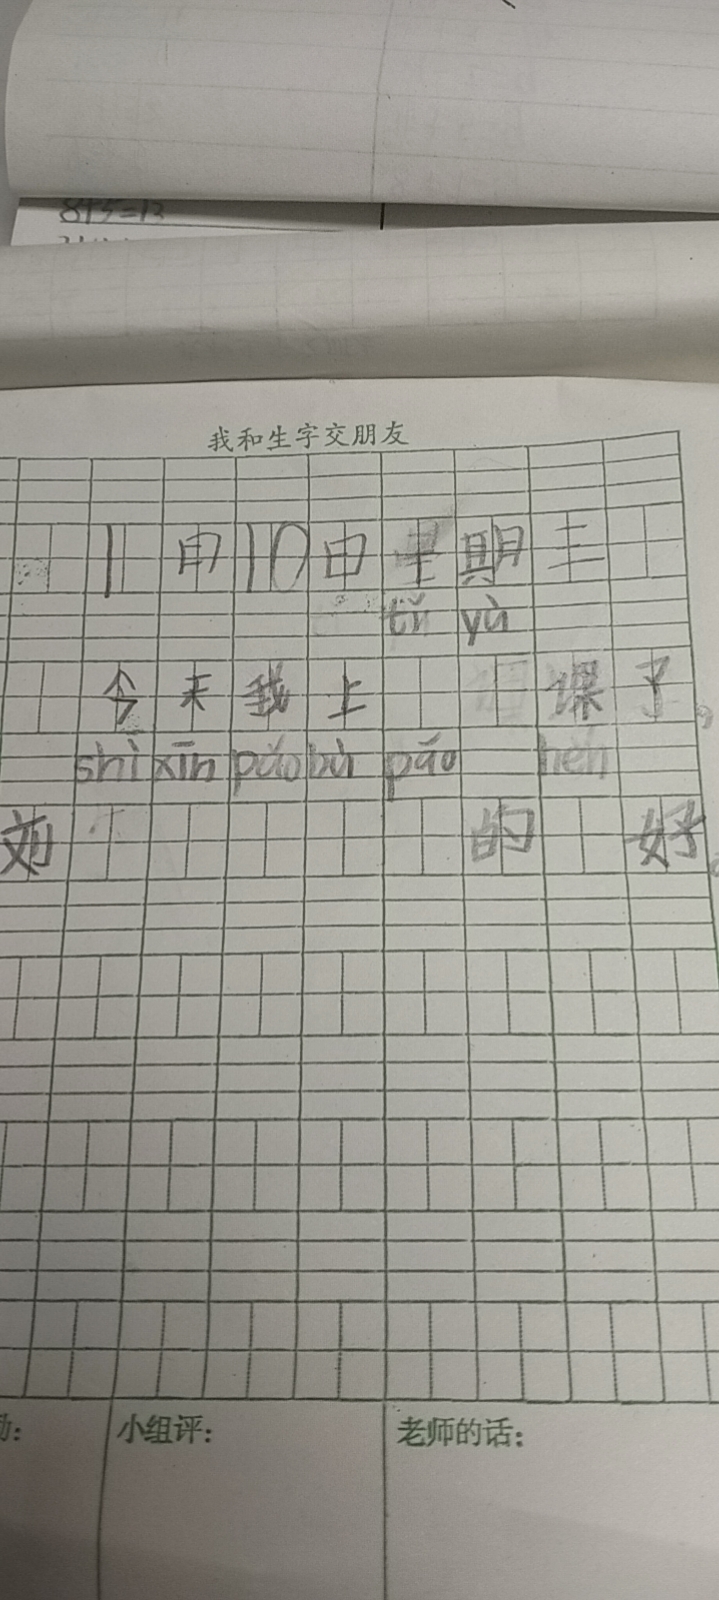 8+5=13
我和生字交朋友
11 申 10 申 星 期 三
tǐ yù
今 天 我 上 课 了 。
shì xīn pǎo bù pǎo hěn
刘 的 好 。
小组评：
老师的话：